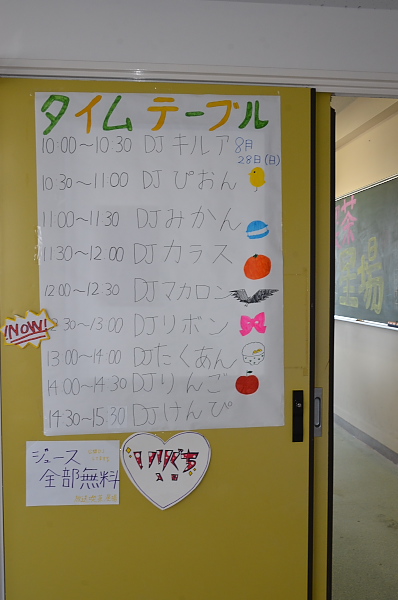 タイムテーブル
10:00～10:30 DJ キルア
8月
28日(日)
10:30～11:00 DJ ぴおん
11:00～11:30 DJ みかん
11:30～12:00 DJ カラス
12:00～12:30 DJ マカロン
NOW!
12:30～13:00 DJ リボン
13:00～14:00 DJ たくあん
14:00～14:30 DJ りんご
14:30～15:30 DJ けんぴ
ジュース
全部無料
茶
場